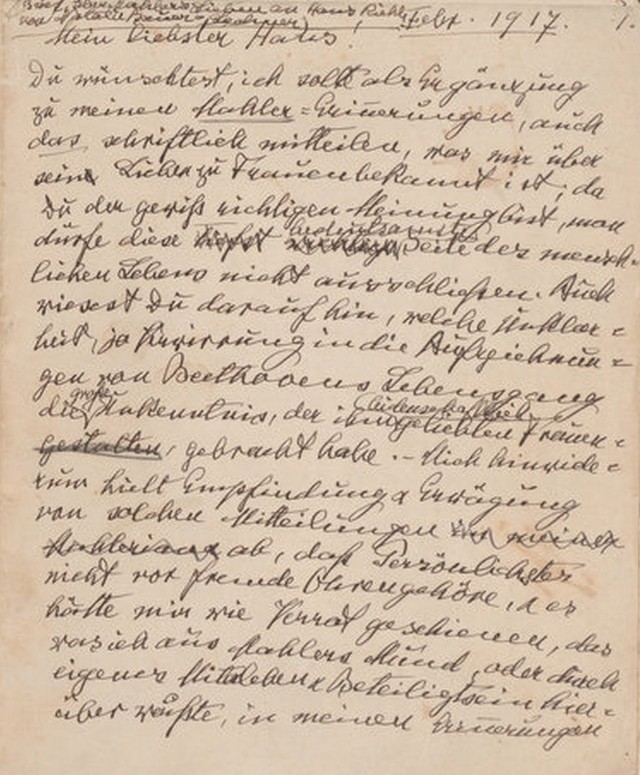 Brief über Mahlers Lieben an Hans Riehl
von Natalie Bauer-Lechner, Febr. 1917. 1.
Mein liebster Hans!
Du wünschtest, ich sollt als Ergänzung
zu meinen Mahler=Erinnerungen, auch
das schriftlich mitteilen, was mir über
seine Liebe zu Frauen bekannt ist; da
Du der gewiß richtigen Meinung bist, man
bedeutsamste
dürfe diese Seite des mensch=
lichen Lebens nicht ausschließen. Auch
wiesest Du darauf hin, welche Unklar=
heit, ja Verwirrung in die Aufzeichnun=
gen von Beethovens Lebensgang
große leidenschaftlich
die Unkenntnis, der ihm geliebten Frauen=
gestalten, gebracht habe. – Mich hinwide=
rum hielt Empfindung & Erwägung
von solchen Mitteilungen in meinen
Mahleriana ab, daß Persönlichstes
nicht vor fremde Ohren gehöre, & es
hätte mir wie Verrat geschienen, das
was ich aus Mahlers Mund, oder durch
eigenes Mitleben & Beteiligtsein hier=
über wußte, in meinen Erinnerungen